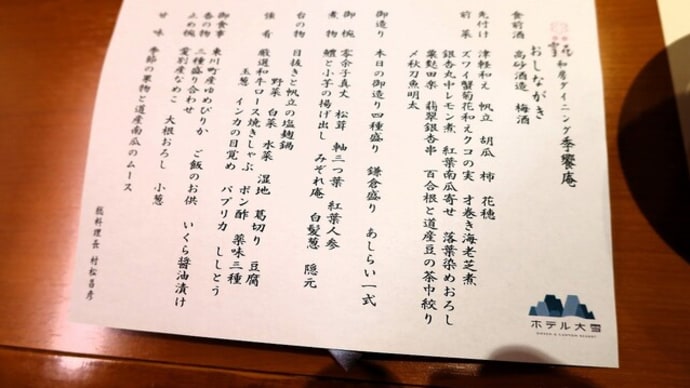 和房ダイニング季饗庵
おしながき
食前酒 高砂酒造 梅酒
先付け 津軽和え 帆立 胡瓜 柿 花穂
前菜 ズワイ蟹菊花和えクコの実 才巻き海老芝煮
銀杏丸中レモン煮 紅葉南瓜寄せ 落葉染めおろし
粟麩田楽 翡翠銀杏串 百合根と道産豆の茶巾絞り
〆秋刀魚明太
御造り 本日の御造り四種盛り 鎌倉盛り あしらい一式
御椀 零余子真丈 松茸 軸三つ葉 紅葉人参
煮物 鱧と小芋の揚げ出し みぞれ庵 白髪葱 隠元
台の物 目抜きと帆立の塩麹鍋
野菜 白菜 水菜 湿地 葛切り 豆腐
強肴 厳選和牛ロース焼きしゃぶ ポン酢 薬味三種
玉葱 インカの目覚め パプリカ ししとう
御食事 東川町産ゆめぴりか ご飯のお供 いくら醤油漬け
香の物 三種盛り合わせ
止め椀 愛別産なめこ 大根おろし 小葱
甘味 季節の果物と道産南瓜のムース
総料理長 村松昌彦
ホテル大雪